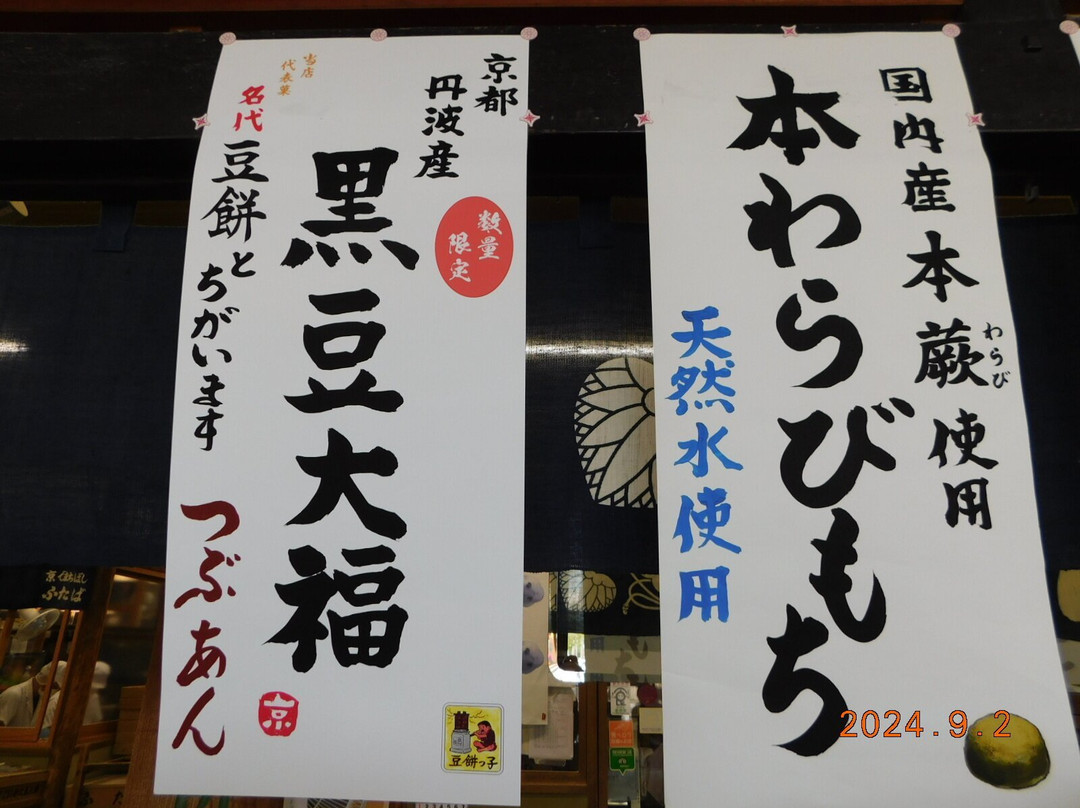 京都
丹波産
数量
限定
黒豆大福
当店
代表菓
名代
豆餅とちがいます
つぶあん
京
豆餅っ子
国内産本蕨使用
わらび
本わらびもち
天然水使用
ふたば
2024.9.2